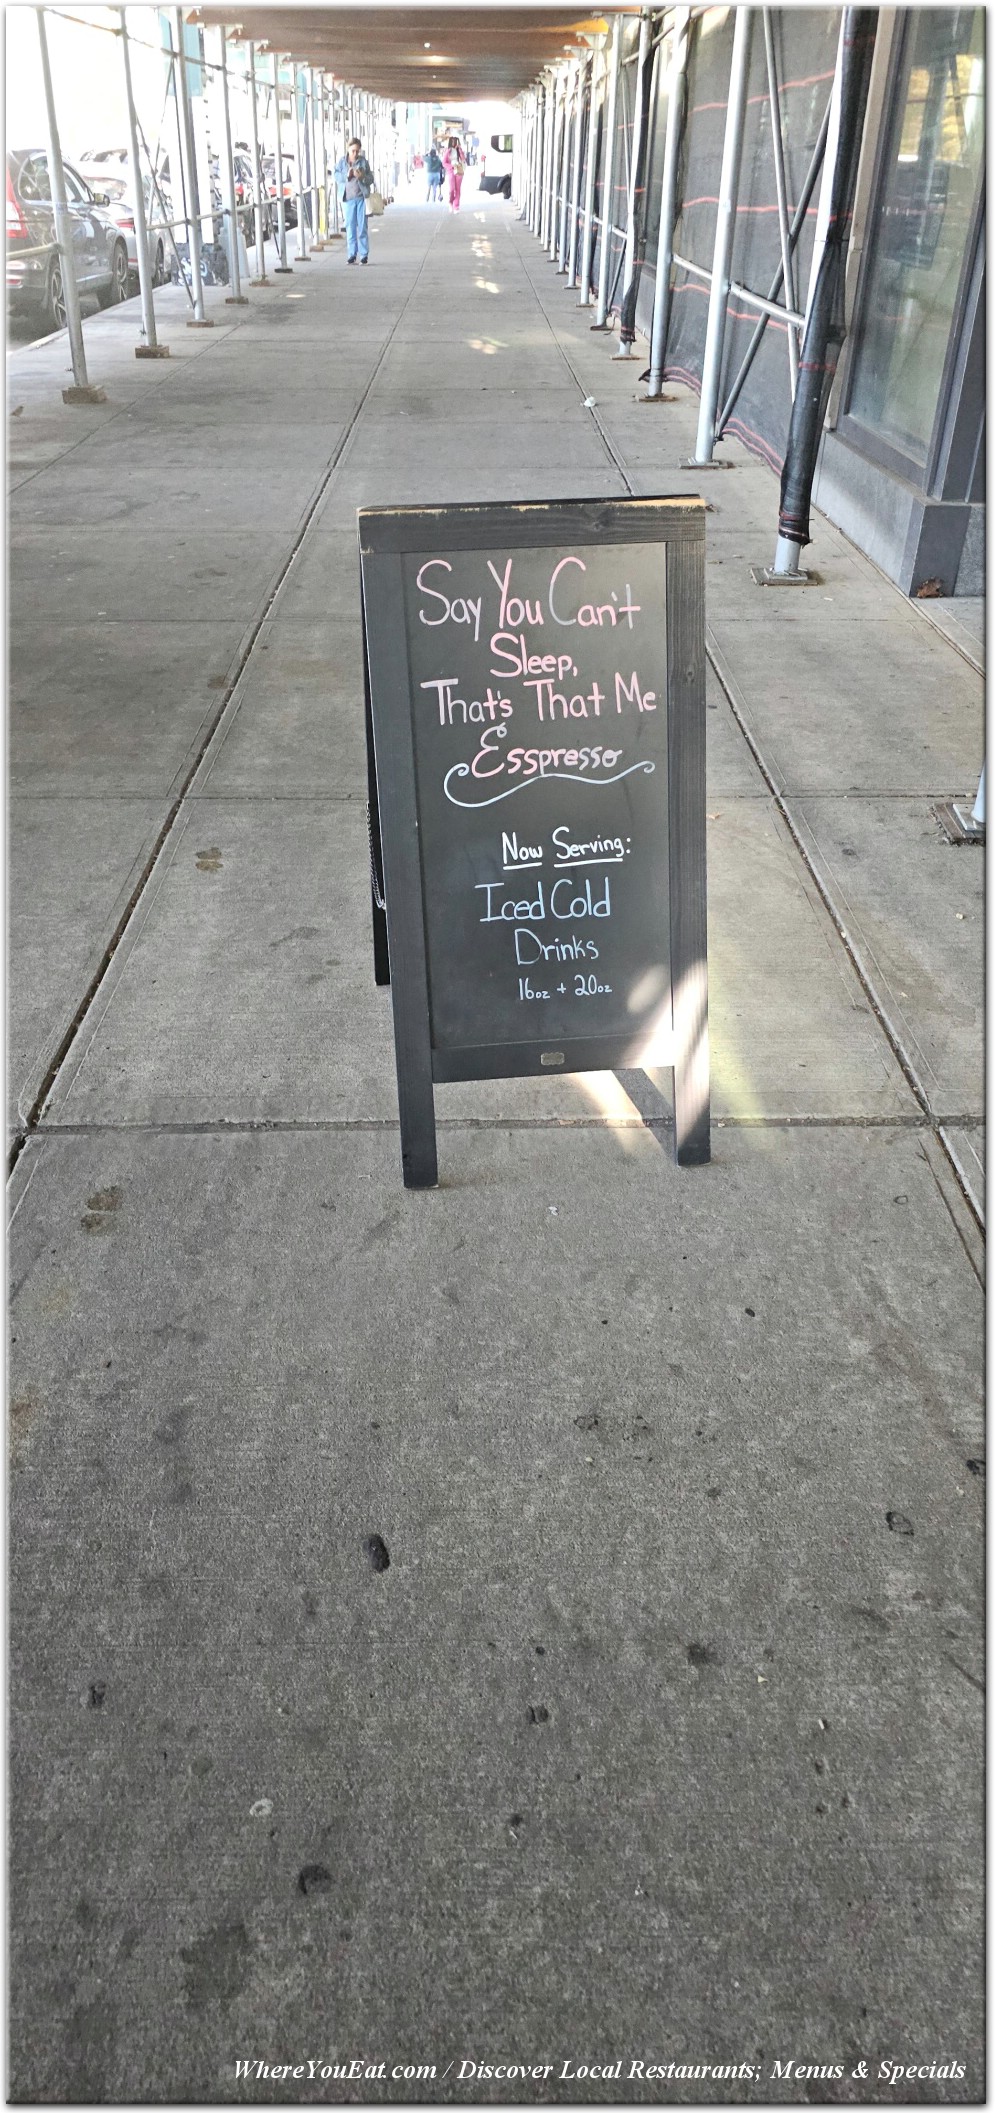 Say You Can't
Sleep,
That's That Me
Esspresso
Now Serving:
Iced Cold
Drinks
16oz + 20oz
WhereYouEat.com / Discover Local Restaurants; Menus & Specials